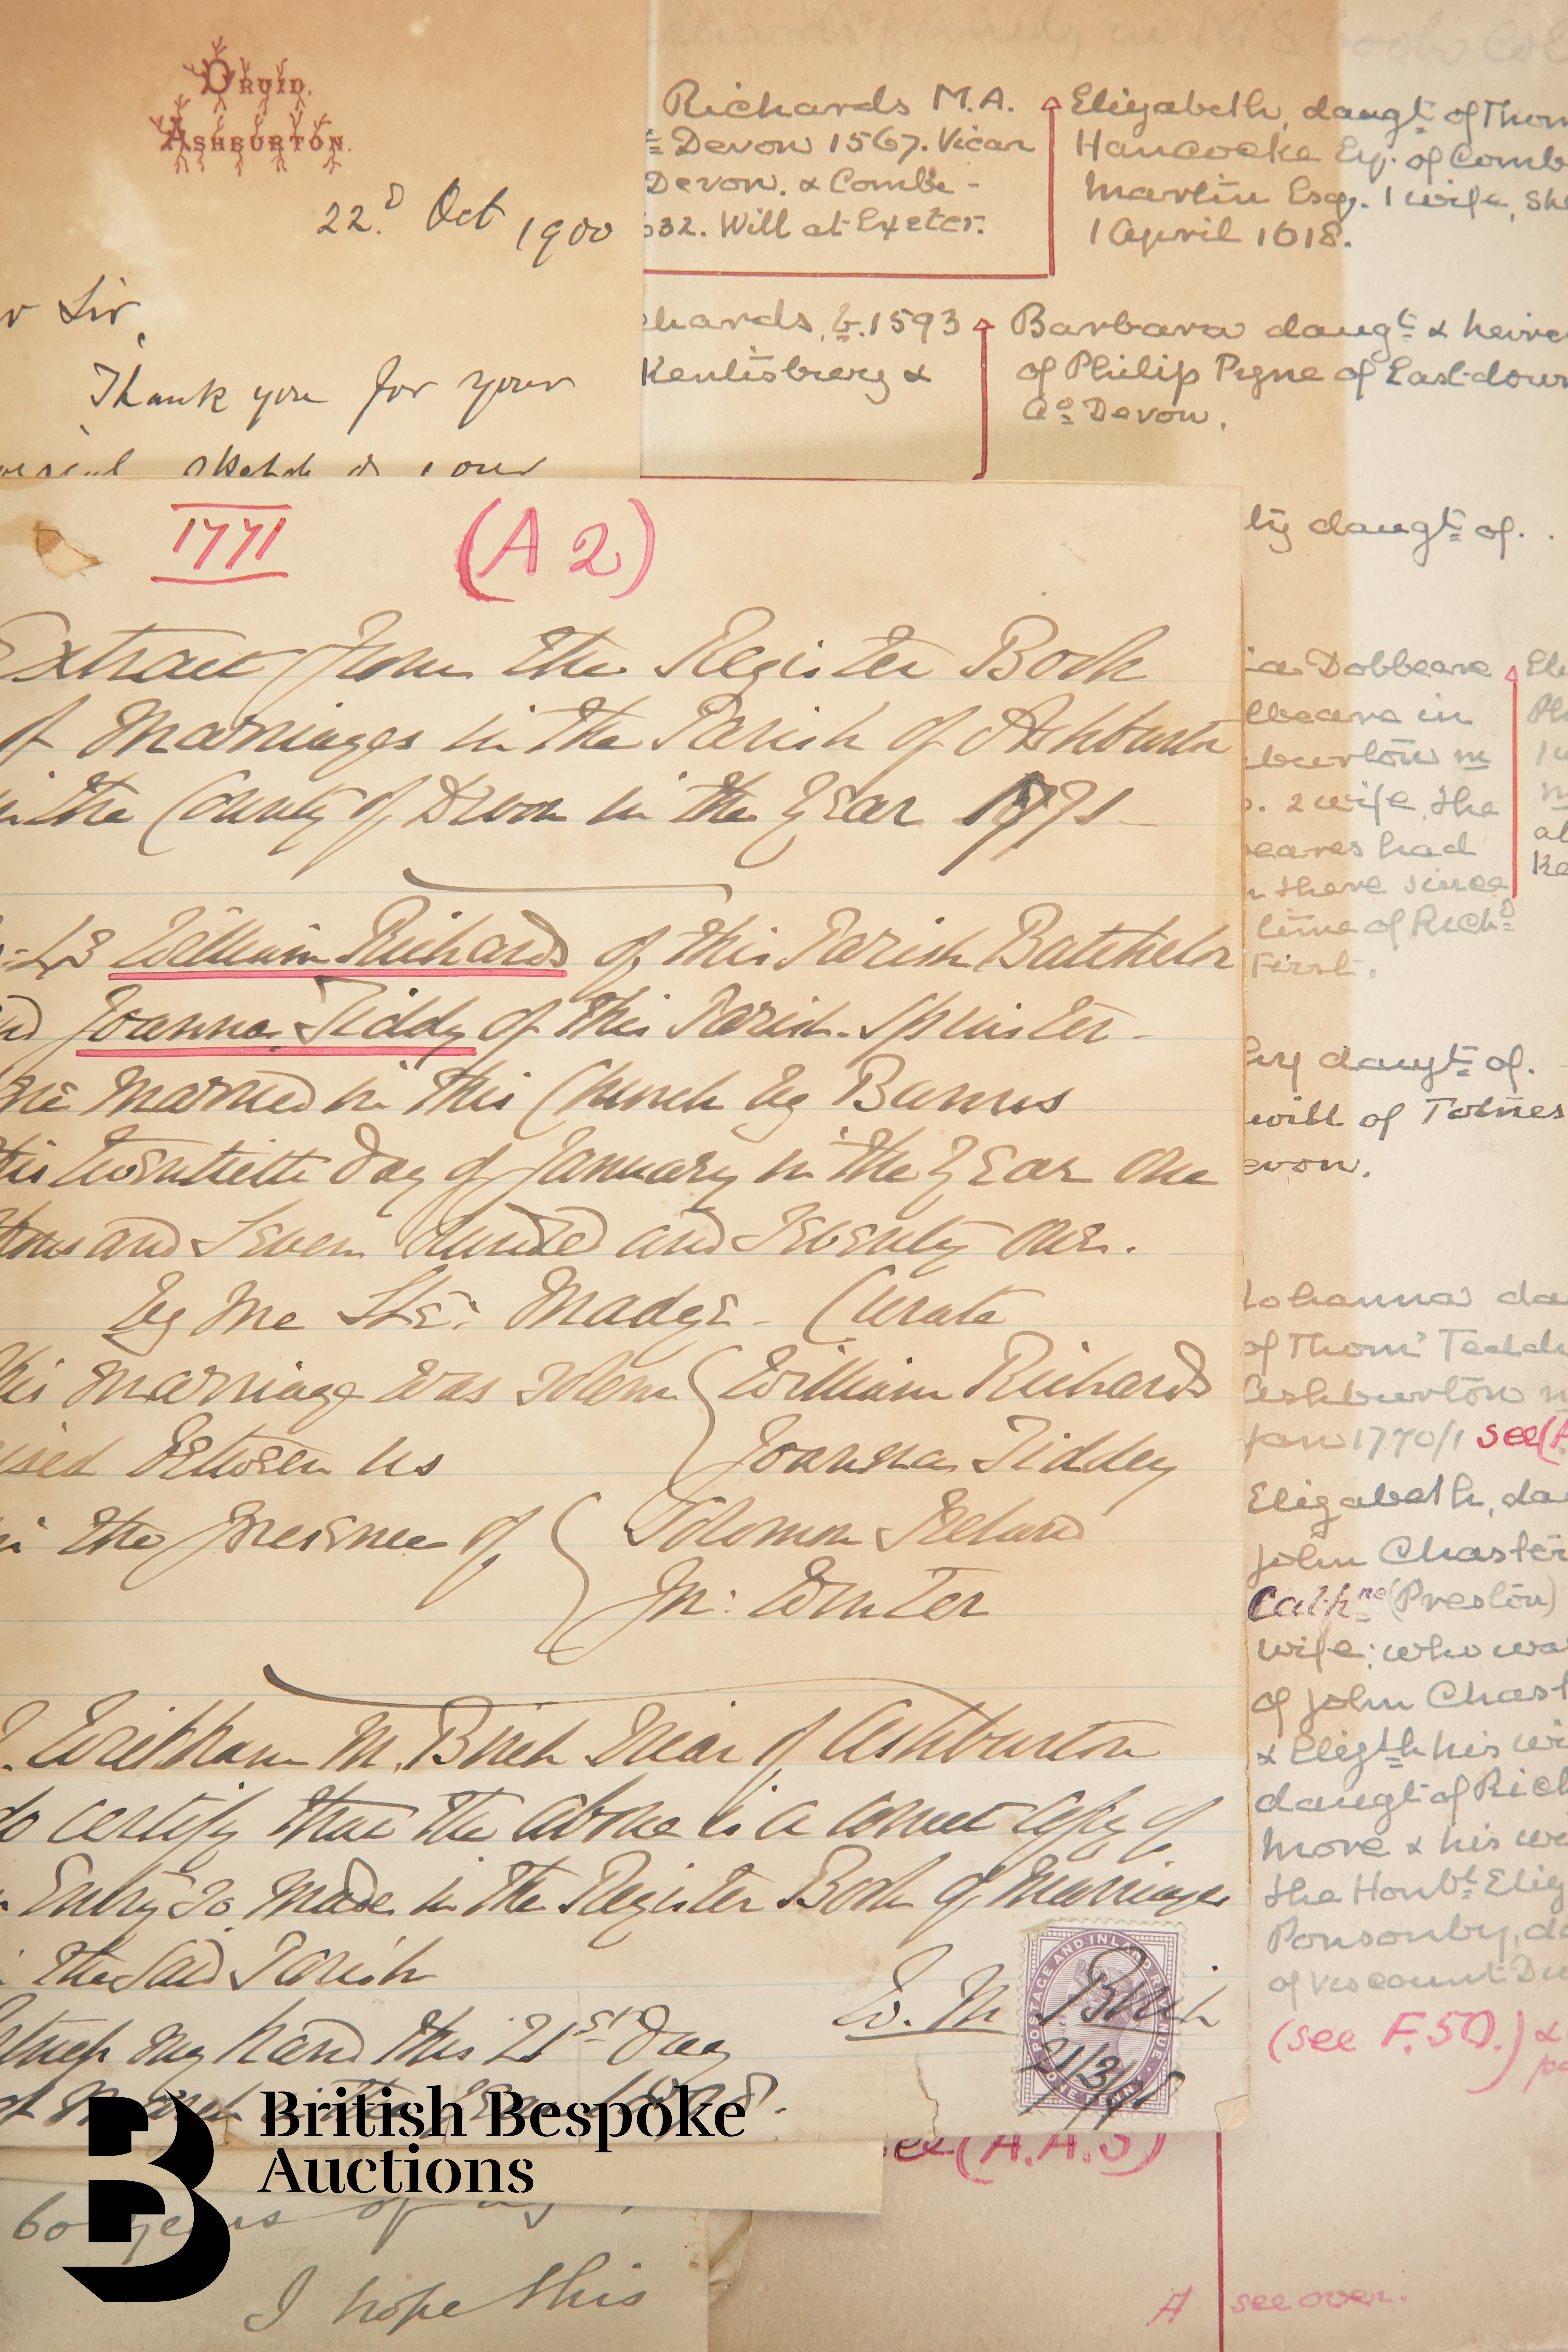 DRUID,
ASHBURTON.
22.D Oct 1900
Sir,
Thank you for your
sketch
Richards M.A.
Devon 1567. Vicar
Devon. & Combe -
632. Will at Exeter.
Elizabeth, daugt of Thom
Hancocke Esq. of Comb
Martin Esq. 1 wife, she
1 April 1618.
chards, b. 1593
Kentisbery &
Barbara daugt & heire
of Philip Pyne of East-down
Co Devon.
1771 (A 2)
Extract from the Register Book
of Marriages in the Parish of Ashburton
in the County of Devon in the Year 1771-
William Richards of this Parish Batchelor
Joanna Tiddy of this Parish Spinster -
Married in this Church by Banns
this twentieth Day of January in the Year One
thousand Seven Hundred and Seventy One.
By Me Ste: Madge - Curate
This Marriage was solem William Richards
ised Between us Joanna Tiddy
in the Presence of Solomon
Jn: Winter
M. Birch Vicar of Ashburton
do certify that the above is a correct Copy of
Entry so Made in the Register Book of Marriages
the said Parish
W. M Birch
my hand this 21st Day
POSTAGE AND INLAND REVENUE
ONE PENNY
21/3/98
ty daugt of. .
Dobbeare
beare in
burton m
2 wife, the
eares had
there since
time of Richd
First.
Ele
daugt of.
will of Totnes
evon.
Johanna da
of Thoms Tedd
Ashburton m
Jan 1770/1 see (A
Elizabeth, da
John Chaster
Cathne (Preston)
wife; who wa
of John Chast
& Elizth his wi
daugt of Rich
more & his w
the Honble Eliz
Ponsonby, da
of Viscount Du
(see F.50.) &
(A.A.3)
60 years of
I hope this
A see over.
British Bespoke
Auctions